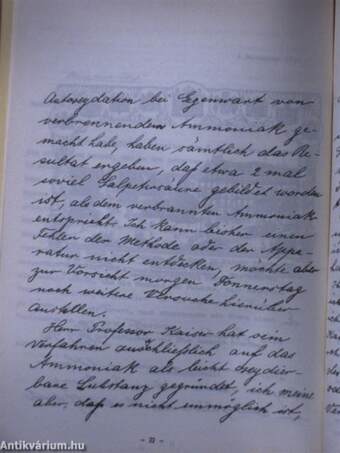 Autoxydation bei Gegenwart von
verbrennendem Ammoniak ge-
macht habe, haben sämtlich das Re-
sultat ergeben, daß etwa 2 mal
soviel Salpetersäure gebildet worden
ist, als dem verbrannten Ammoniak
entspricht. Ich kann bisher einen
Fehler der Methode oder der Appa-
ratur nicht entdecken, möchte aber
zur Vorsicht morgen Donnerstag
noch weitere Versuche hierüber
anstellen.
Herr Professor Kaiser hat sein
Verfahren ausschließlich auf das
Ammoniak als leicht oxydier-
bare Substanz gegründet, ich meine
aber, daß es nicht unmöglich ist,
Antikvárium.hu